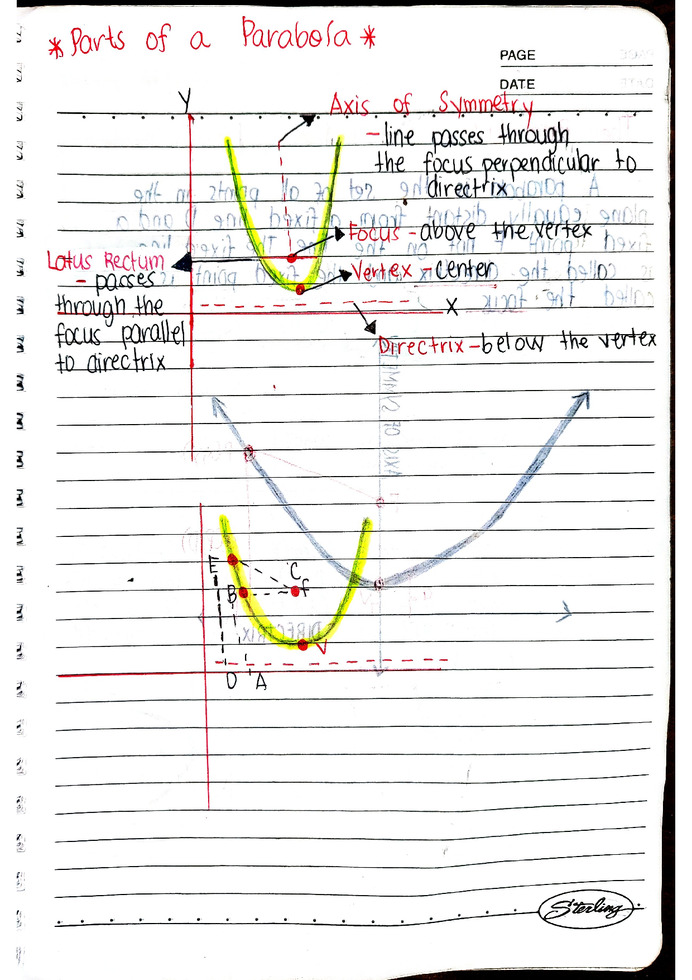 *Parts of a Parabola*
PAGE
DATE
Y
Axis of Symmetry
-line passes through
the focus perpendicular to
directrix
Focus - above the vertex
Latus Rectum
- passes
through the
focus parallel
to directrix
Vertex - center
X
Directrix - below the vertex
E
C
B
F
V
D
A
Sterling